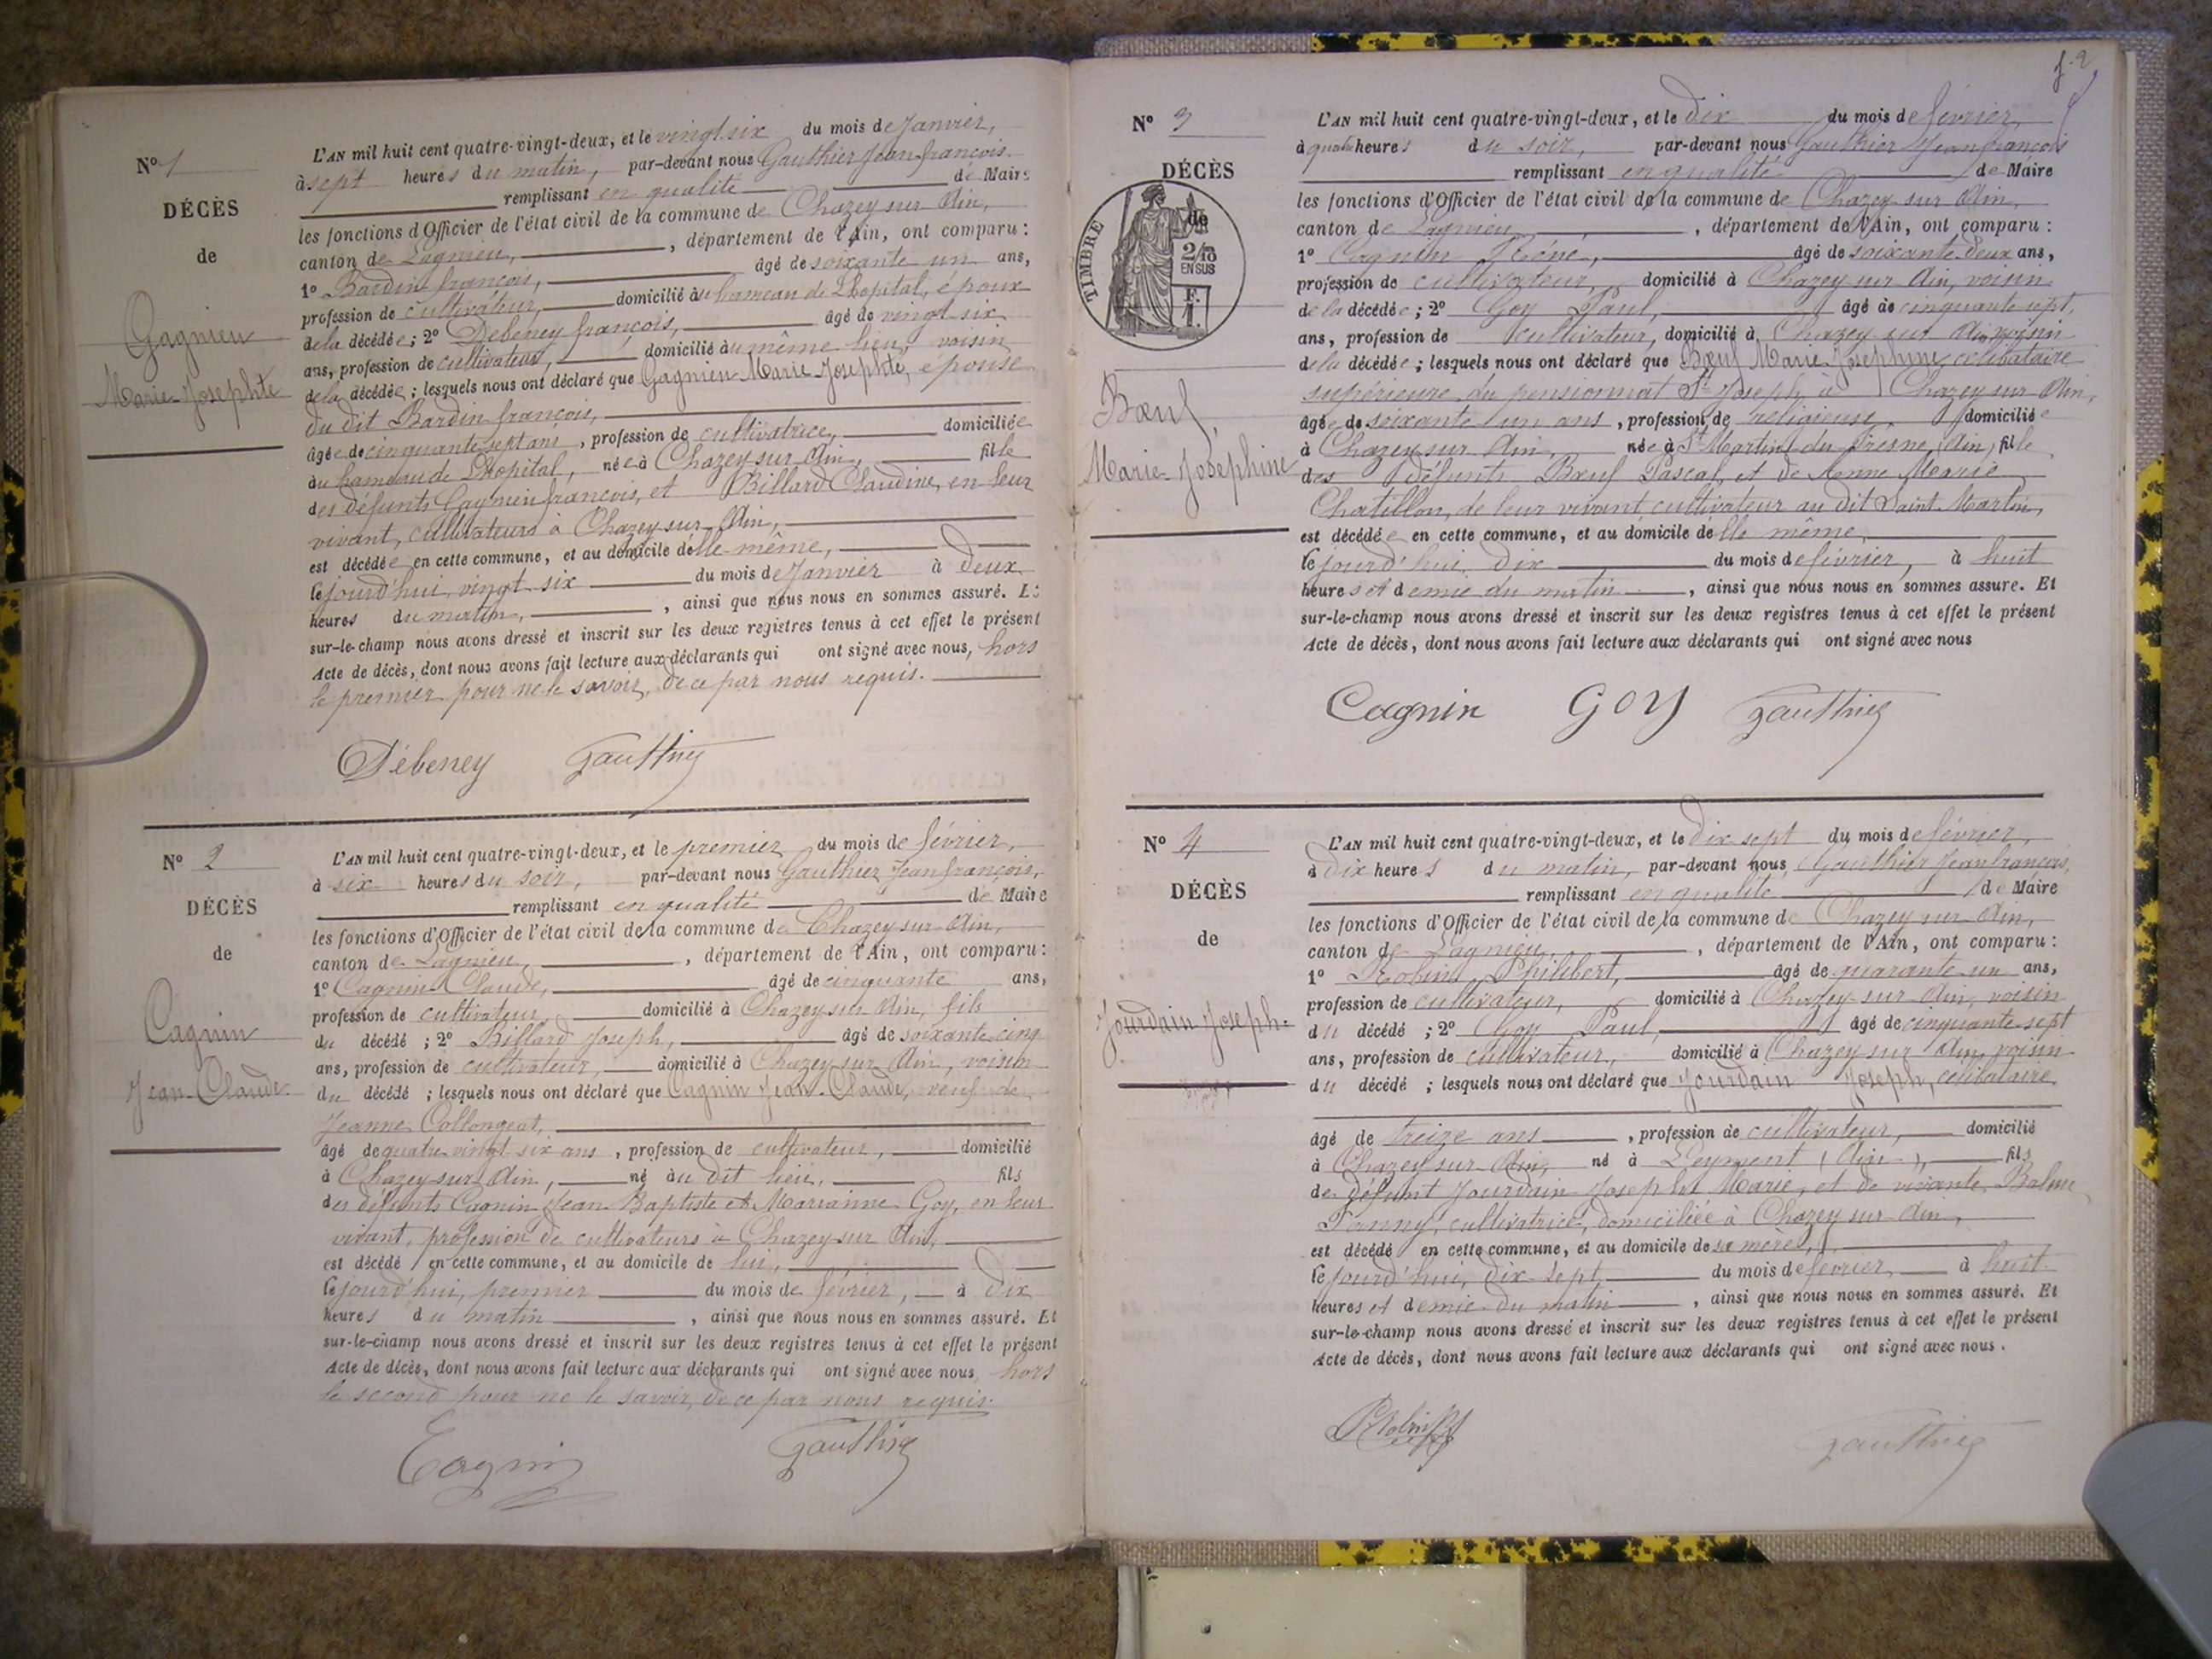 N° 1
DÉCÈS
de
Gagnieu
Marie-Josephte
L'AN mil huit cent quatre-vingt-deux, et le vingt six du mois de Janvier,
à sept heures du matin, par-devant nous Gauthier Jean françois
remplissant en qualité de Maire
les fonctions d'Officier de l'état civil de la commune de Chazey sur Ain,
canton de Lagnieu, , département de l'Ain, ont comparu :
1° Bardin françois, âgé de soixante un ans,
profession de cultivateur, domicilié au hameau de Lhopital, époux
de la décédée ; 2° Debeney françois, âgé de vingt six
ans, profession de cultivateur, domicilié au même lieu, voisin
de la décédée ; lesquels nous ont déclaré que Gagnieu Marie Josephte, épouse
du dit Bardin françois,
âgée de cinquante sept ans , profession de cultivatrice, domiciliée
au hameau de Lhopital, née à Chazey sur Ain, fille
des défunts Gagnieu françois, et Billard Claudine, en leur
vivant, cultivateurs à Chazey sur Ain,
est décédée en cette commune, et au domicile delle même,
le jourd'hui, vingt six du mois de Janvier à deux
heures du matin, , ainsi que nous nous en sommes assuré. Et
sur-le-champ nous avons dressé et inscrit sur les deux registres tenus à cet effet le présent
Acte de décès, dont nous avons fait lecture aux déclarants qui ont signé avec nous, hors
le premier pour ne le savoir, de ce par nous requis.
Débeney Gauthier
N° 2
DÉCÈS
de
Cagnin
Jean-Claude
L'AN mil huit cent quatre-vingt-deux, et le premier du mois de février,
à six heures du soir, par-devant nous Gauthier Jean françois,
remplissant en qualité de Maire
les fonctions d'Officier de l'état civil de la commune de Chazey sur Ain,
canton de Lagnieu, , département de l'Ain, ont comparu :
1° Cagnin Claude, âgé de cinquante ans,
profession de cultivateur, domicilié à Chazey sur Ain, fils
du décédé ; 2° Billard Joseph, âgé de soixante cinq
ans, profession de cultivateur, domicilié à Chazey sur Ain, voisin
du décédé ; lesquels nous ont déclaré que Cagnin Jean-Claude, veuf de
Jeanne Collongeat,
âgé de quatre vingt six ans , profession de cultivateur, domicilié
à Chazey sur Ain, né au dit lieu, fils
des défunts Cagnin Jean Baptiste et Marianne Goy, en leur
vivant, profession de cultivateurs à Chazey sur Ain,
est décédé en cette commune, et au domicile de lui,
le jourd'hui, premier du mois de février, à dix
heures du matin , ainsi que nous nous en sommes assuré. Et
sur-le-champ nous avons dressé et inscrit sur les deux registres tenus à cet effet le présent
Acte de décès, dont nous avons fait lecture aux déclarants qui ont signé avec nous, hors
le second pour ne le savoir, de ce par nous requis.
Cagnin Gauthier
f. 2
N° 3
DÉCÈS
de
TIMBRE
2/10
EN SUS
F.
1.
Bœuf
Marie-Josephine
L'AN mil huit cent quatre-vingt-deux, et le dix du mois de février,
à quatre heures du soir, par-devant nous Gauthier Jean françois
remplissant en qualité de Maire
les fonctions d'Officier de l'état civil de la commune de Chazey sur Ain,
canton de Lagnieu, , département de l'Ain, ont comparu :
1° Cagnin Réné, âgé de soixante deux ans,
profession de cultivateur, domicilié à Chazey sur Ain, voisin
de la décédée ; 2° Goy Paul, âgé de cinquante sept,
ans, profession de cultivateur, domicilié à Chazey sur Ain, voisin
de la décédée ; lesquels nous ont déclaré que Bœuf Marie Josephine, célibataire
supérieure du pensionnat St Joseph à Chazey sur Ain,
âgée de soixante un ans , profession de religieuse, domiciliée
à Chazey sur Ain, née à St Martin du fresne, (Ain) fille
des défunts Bœuf Pascal, et de Anne Marie
Chatillon, de leur vivant cultivateur au dit Saint-Martin,
est décédée en cette commune, et au domicile de lle même,
le jourd'hui, dix du mois de février, à huit
heures et demie du matin , ainsi que nous nous en sommes assuré. Et
sur-le-champ nous avons dressé et inscrit sur les deux registres tenus à cet effet le présent
Acte de décès, dont nous avons fait lecture aux déclarants qui ont signé avec nous
Cagnin GOY Gauthier
N° 4
DÉCÈS
de
Jourdain Joseph.
L'AN mil huit cent quatre-vingt-deux, et le dix sept du mois de février,
à dix heures du matin, par-devant nous Gauthier Jean françois,
remplissant en qualité de Maire
les fonctions d'Officier de l'état civil de la commune de Chazey sur Ain,
canton de Lagnieu, , département de l'Ain, ont comparu :
1° Robin Philibert, âgé de quarante un ans,
profession de cultivateur, domicilié à Chazey sur Ain, voisin
du décédé ; 2° Goy Paul, âgé de cinquante sept
ans, profession de cultivateur, domicilié à Chazey sur Ain, voisin
du décédé ; lesquels nous ont déclaré que Jourdain Joseph, célibataire
âgé de treize ans , profession de cultivateur, domicilié
à Chazey sur Ain, né à Leyment (Ain), fils
de défunt Jourdain Joseph Marie, et de vivante Balme
Fanny, cultivatrice, domiciliée à Chazey sur Ain,
est décédé en cette commune, et au domicile de sa mère,
le jourd'hui, dix-sept, du mois de février à huit
heures et demie du matin , ainsi que nous nous en sommes assuré. Et
sur-le-champ nous avons dressé et inscrit sur les deux registres tenus à cet effet le présent
Acte de décès, dont nous avons fait lecture aux déclarants qui ont signé avec nous.
Robin Gauthier